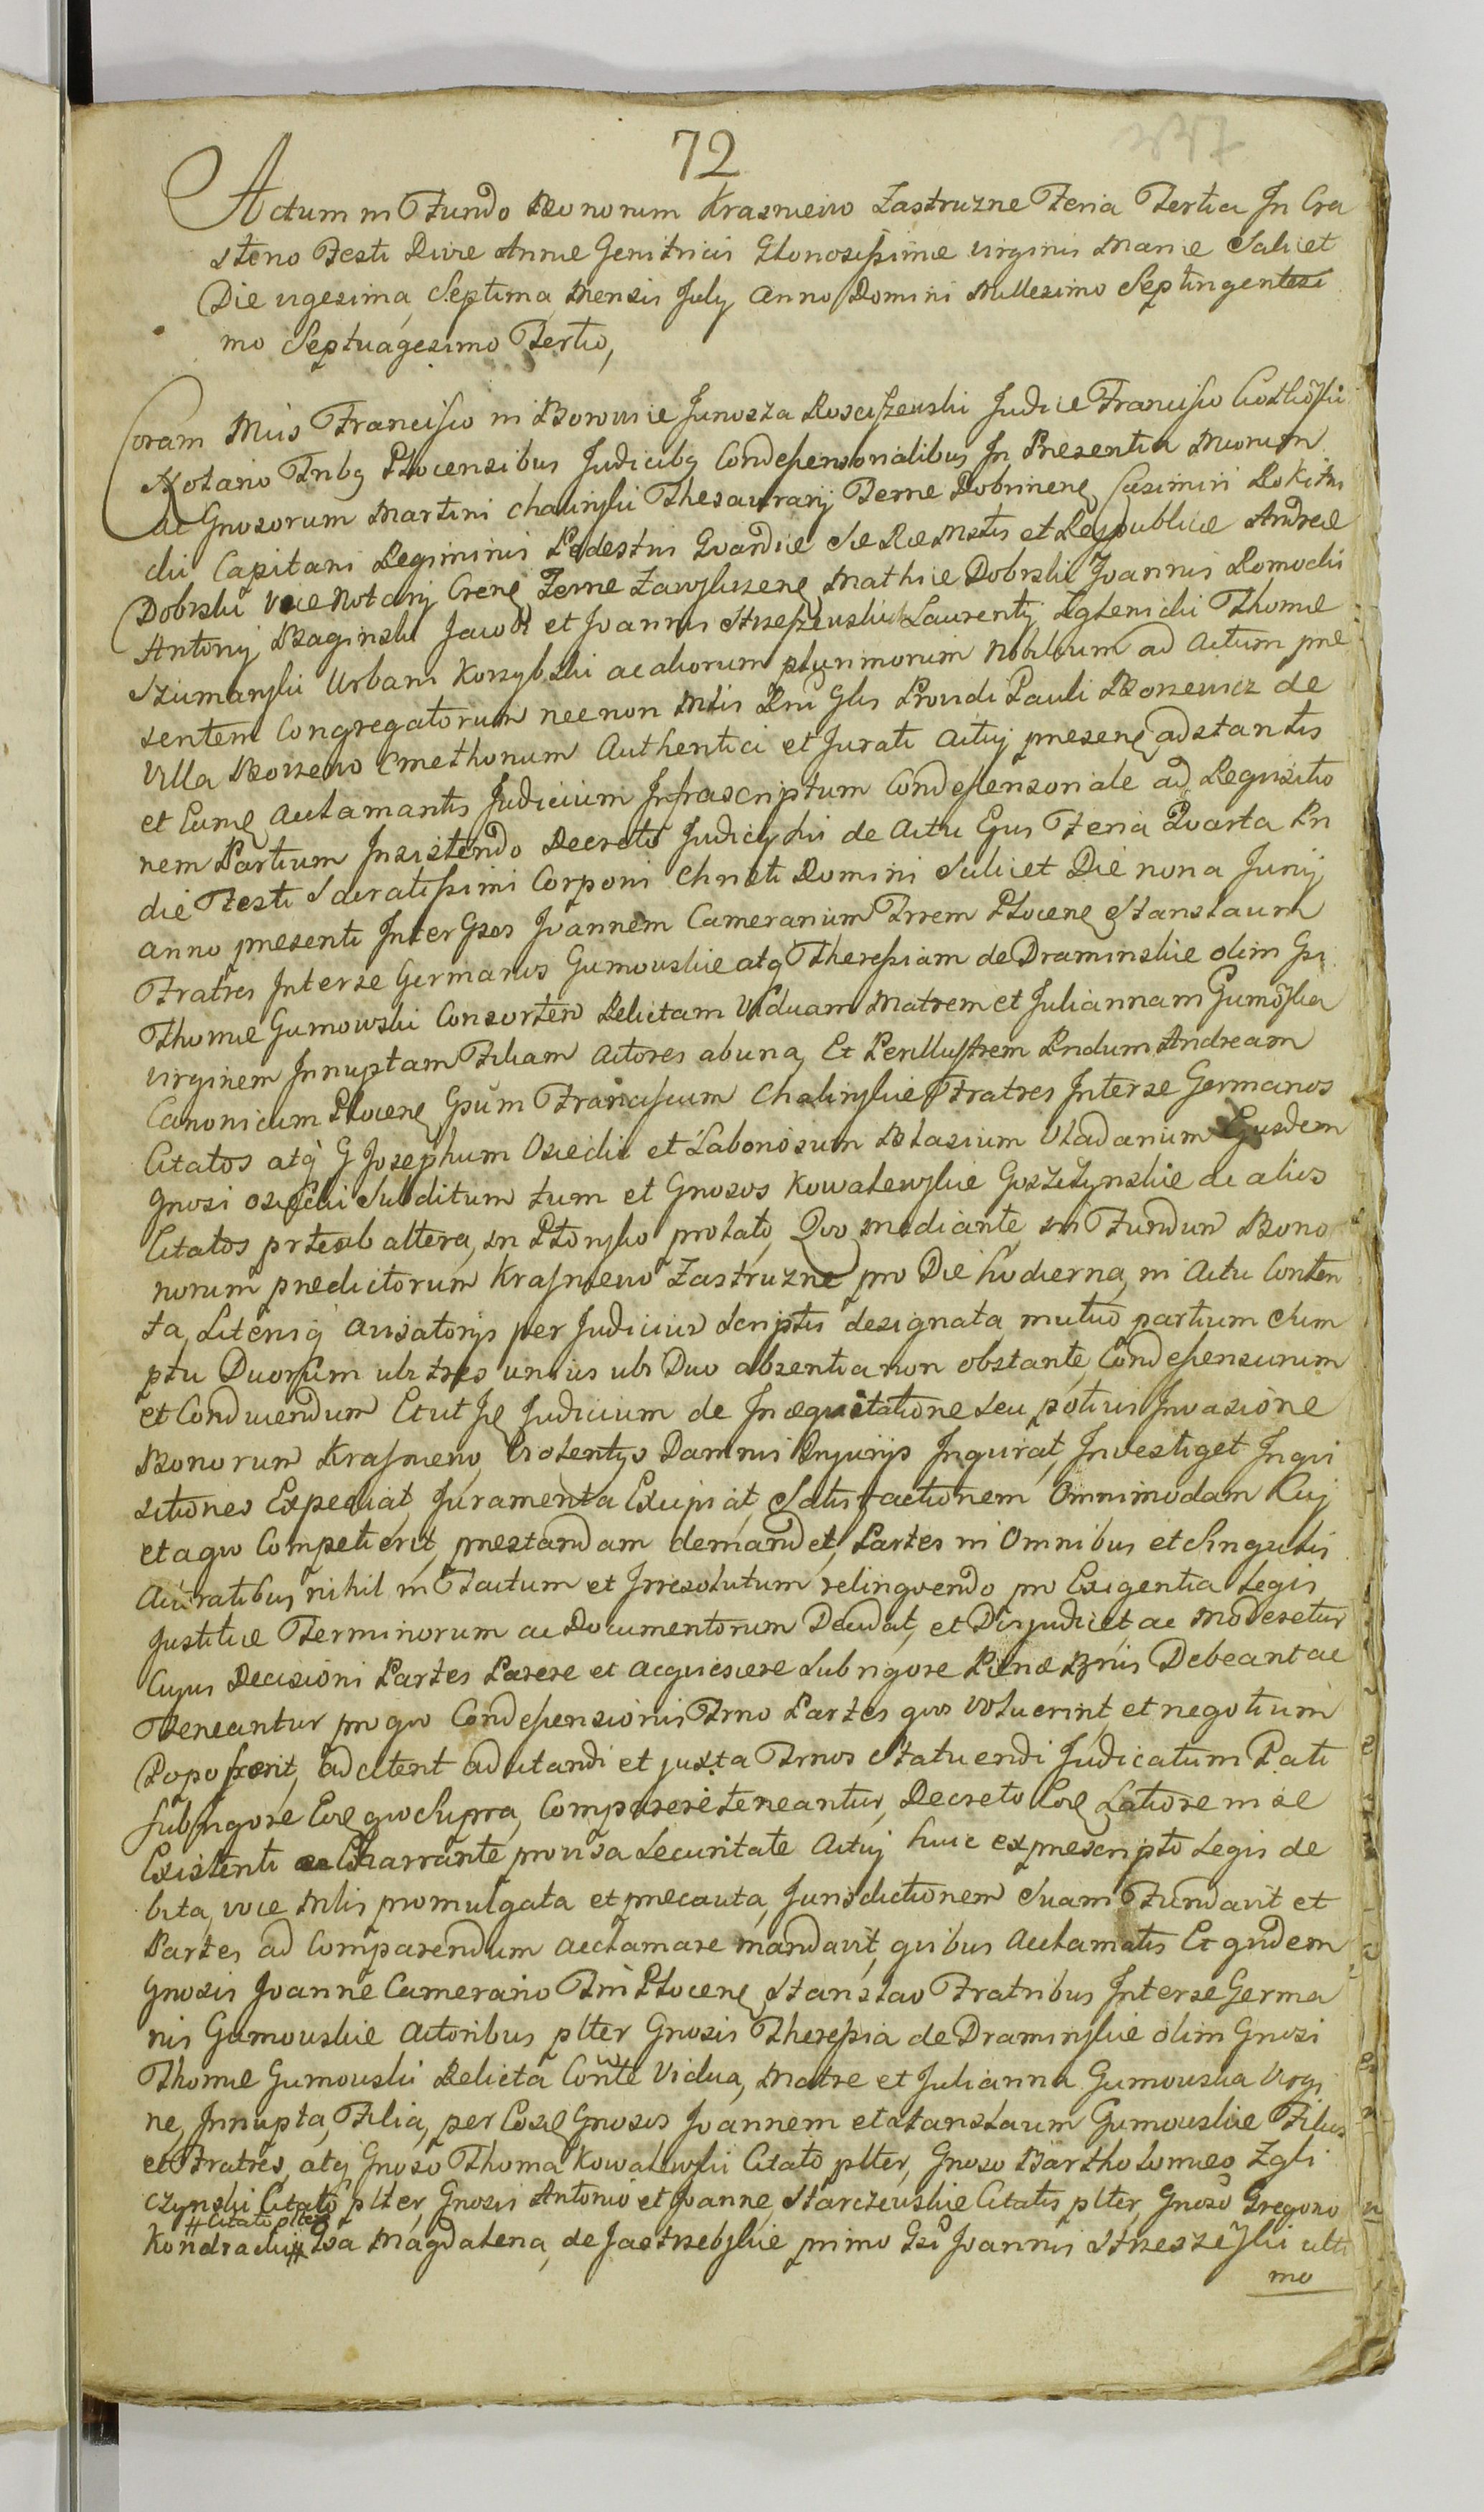 72
Actum in Fundo Bonorum Krasniewo Zastruzne Feria Tertia In Cra
steno Festi Divæ Annæ Genitricis Gloriosissimæ virginis Mariæ Scilicet
Die vigesima Septima Mensis July Anno Domini Millesimo Septingentesi
mo Septuagesimo Tertio,
Coram Mcis Francisco in Borowice Junosza Rosciszewski Judice Francisco
Notario Tribq Plocensibus Judicibq Condescensorialibus In Presentia Mcorum
ac Gnosorum Martini Chalinski Thesaurarij Terræ Dobrinenę Casimiri Rokitni
cki Capitani Regiminis Pedestris Gvardiæ Sæ Ræ Mstis et Reipublicæ Andreæ
Dobrski Vice Notarij Crenę Terræ Zawskrzenę Mathiæ Dobrski Joannis Romocki
Antonij Bagienski Jacobi et Joannis Strzeszewskich Laurentij Zglenicki Thomæ
Szumanski Urbani Korzybski ac aliorum plurimorum Nobilium ad Actum præ
sentem Congregatorum necnon Mtis Rni Glis Providi Pauli Borzewicz de
Villa Borzewo Cmethonum Authentici et Jurati Actuj presenę adstantis
et Eumę Acclamantis Judicium Infrascriptum Condescensoriale ad Requisitio
nem Partium Insistendo Decreto Judicij sui de Actu Ejus Feria Qvarta Pri
die Festi Sacratissimi Corporis Christi Domini Scilicet Die nona Junij
anno presenti Inter Gsos Joannem Camerarium Trrem Plocenę Stanislaum
Fratres Inter se Germanos Gumowskie atq Theressiam de Draminskie olim Gsi
Thomæ Gumowski Consortem Relictam Viduam Matrem et Juliannam Gumowska
virginem Innuptam Filiam Actores ab una, Et Perillustrem Rndum Andream
Canonicum Plocenę Gsum Franciscum Chalinskie Fratres Inter se Germanos
Citatos atq G Josephum Osiecki et Laboriosum Blasium Vladarium Ejusdem
Gnosi Osiecki Subditum tum et Gnosos Kowalewskie Goszczynskie ac alios
Citatos prteab altera, in Plonsko prolato, Qvo mediante, in Fundum Bono
norum predictorum Krasniewo Zastruzne pro Die hodierna, in Actu Conten
ta, Literisq avisatorijs per Judicium Scriptis designata mutuo partium Sum
ptu Duorum ubi tres unius ubi Duo absentia non obstante, Condescensurum
et Conducendum Et ut Ję Judicium de Inæquitatione seu potius Invasione
Bonorum Krasniewo Violentijs Damnis Injurijs Inqvirat, Investiget Inqvi
sitiones Expediat, Juramenta Excipiat, Satisfactionem Omnimodam Cuj
et a qvo Competierit, prestandam demandet, Partes in Omnibus et Singulis
Accuratibus nihil in Tactum et Irresolutum relinqvendo pro Exigentia Legis
Justitiæ Terminorum ac Documentorum Decidat, et Disjudicet ac Moderetur
Cujus Decisioni Partes Parere et acqviescere Sub rigore Pænæ Bnis Debeant ac
Teneantur pro qvo Condescensionis Trno Partes qvos Voluerint, et negotium
Poposcerit, adcitent adcitandi et juxta Trnos Statuendi Judicatum Pati
Sub rigore Eoę qvo Supra, Comparere teneantur, Decreto Eoę Latiore in se
Existenti Enarrante provisa Securitate Actuj huic ex prescripto Legis de
bita, voce Mtlis promulgata et precauta, Jurisdictionem Suam Fundavit et
Partes ad Comparendum acclamare mandavit, qvibus Acclamatis Et qvidem
Gnosis Joanne Camerario Trri Plocenę, Stanislao Fratribus Inter se Germa
nis Gumowskie Actoribus plter Gnosis Theressia de Draminskie olim Gnosi
Thomæ Gumowski Relicta Conte Vidua, Matre et Julianna Gumowska Virgi
ne, Innupta, Filia, per Eosdę Gnosos Joannem et Stanislaum Gumowskie Filios
et Fratres, atq Gnoso Thoma Kowalewski Citato plter, Gnoso Bartholomeo Zgli
czynski Citato plter, Gnosis Antonio et Joanne, Starczewskie Citatis plter, Gnoso Gregorio
# Citato plter
Kondracki # Gsa Magdalena, de Jastrzebskie primo Gsi Joannis Strzeszewski ulti
mo